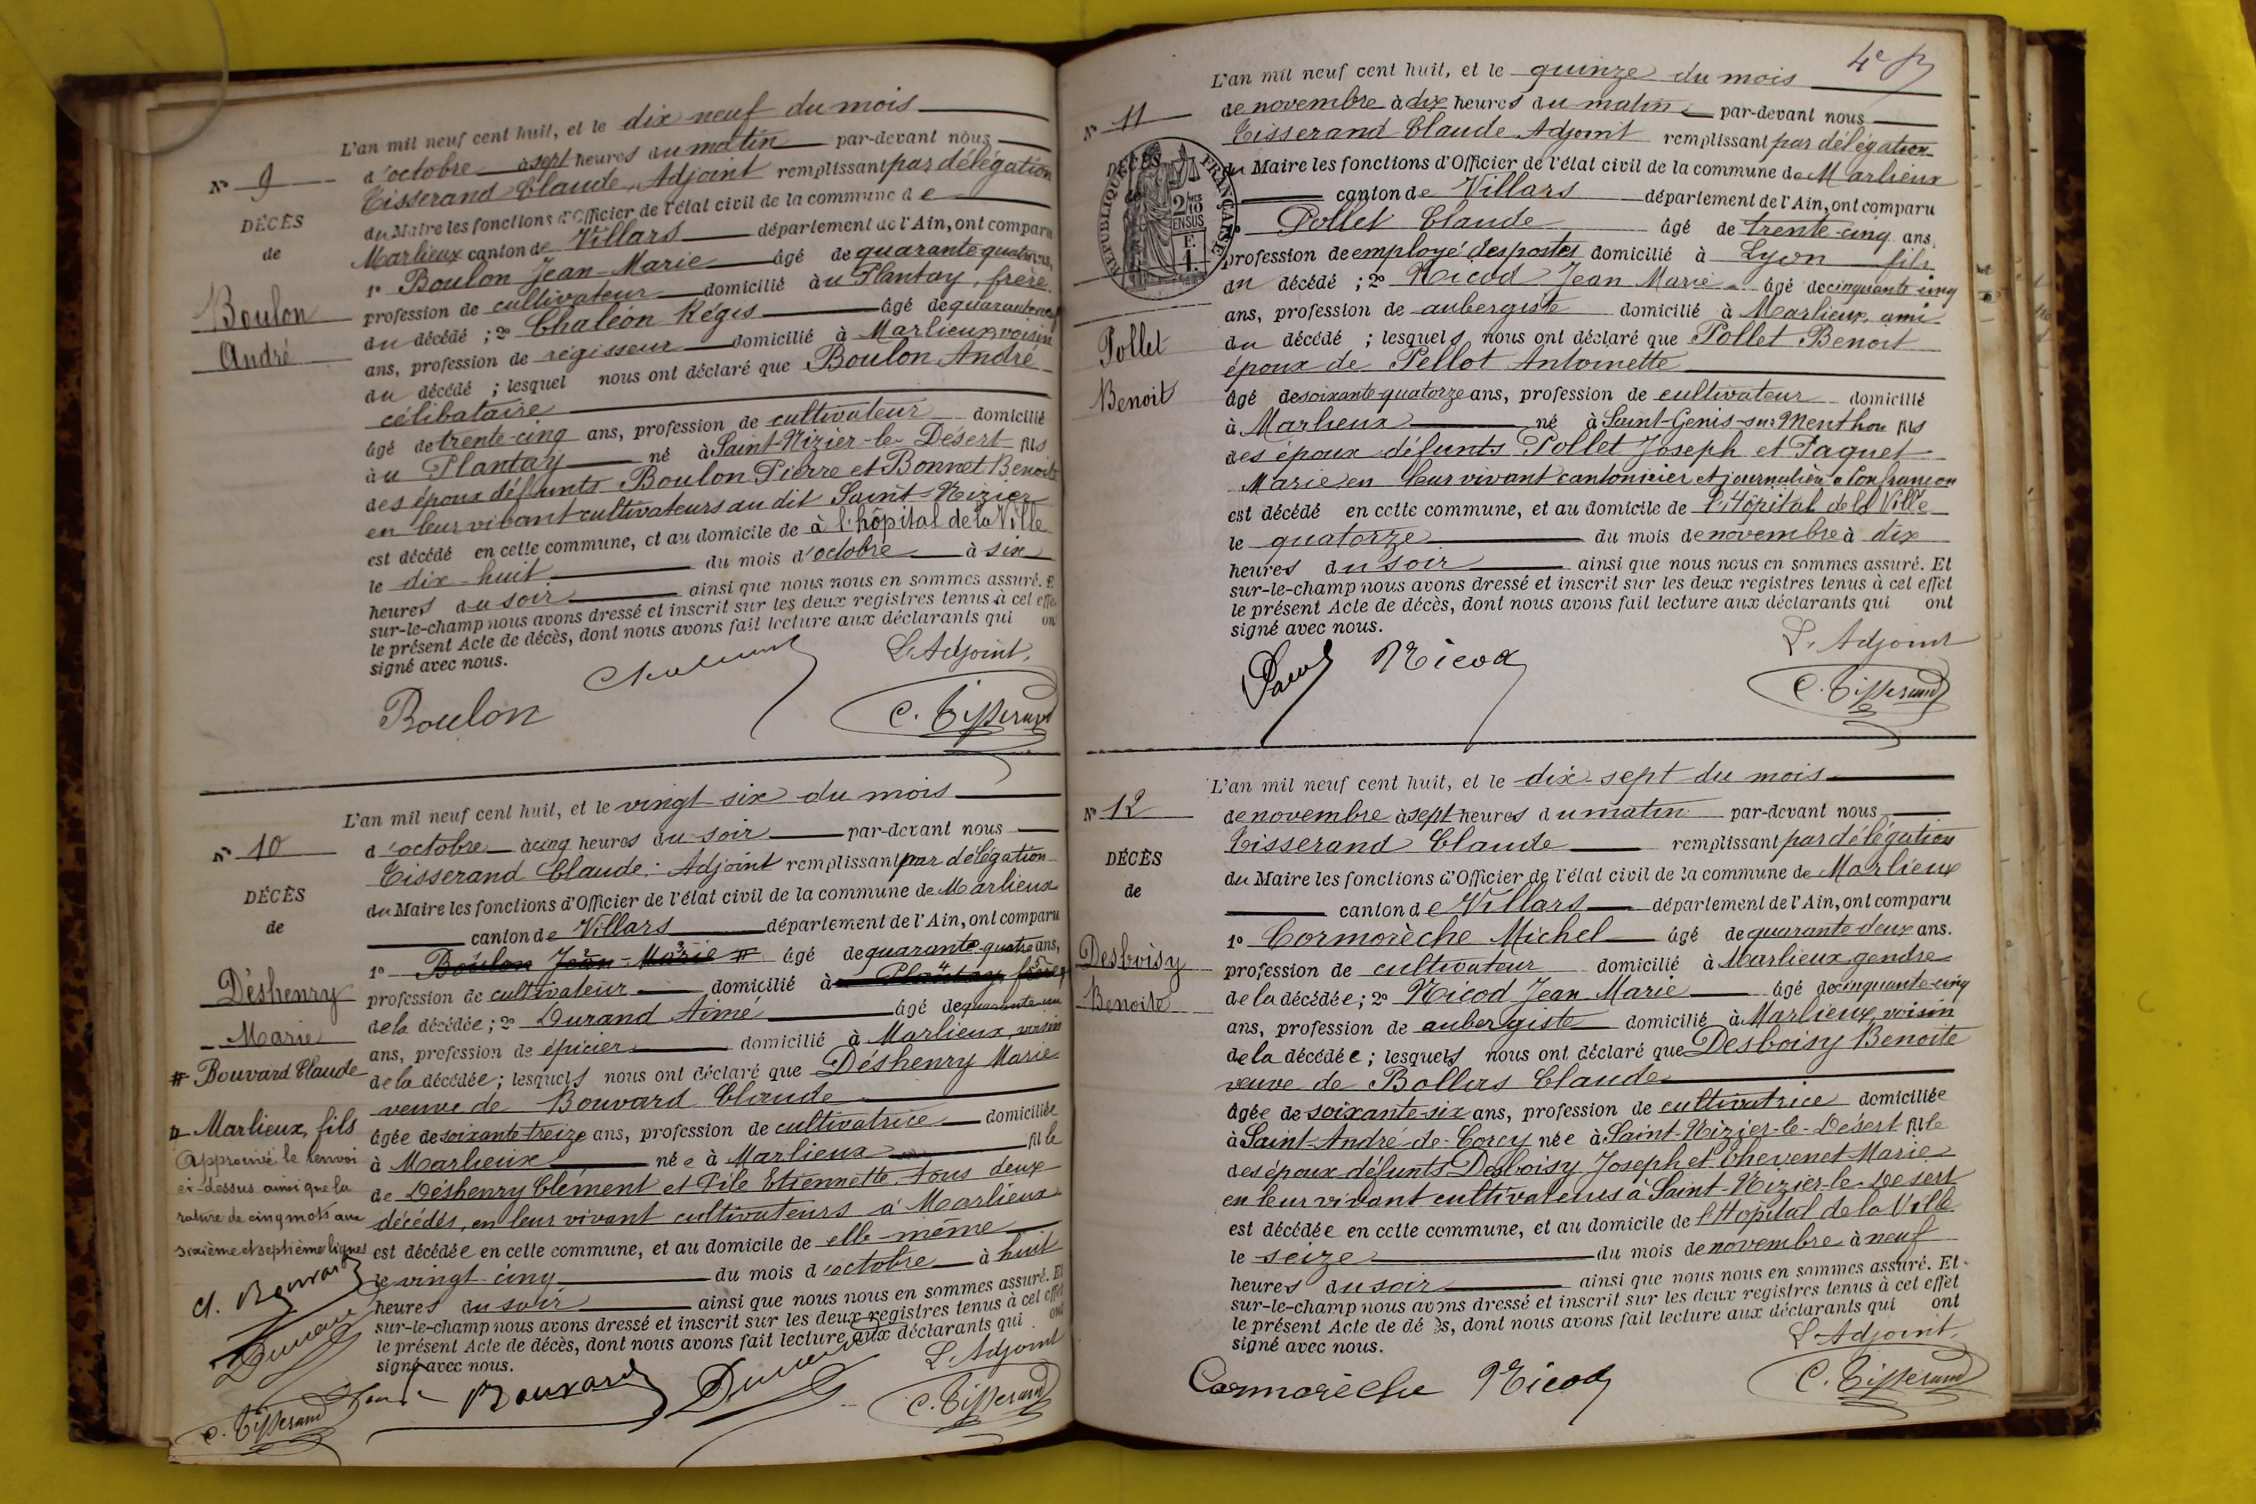 L'an mil neuf cent huit, et le dix neuf du mois
d'octobre à sept heures du matin par-devant nous
Tisserand Claude, Adjoint remplissant par délégation
du Maire les fonctions d'Officier de l'état civil de la commune de
Marlieux canton de Villars département de l'Ain, ont comparu
1º Boulon Jean-Marie âgé de quarante quatre ans,
profession de cultivateur domicilié au Plantay, frère
du décédé ; 2º Chaléon Régis âgé de quarante neuf
ans, profession de régisseur domicilié à Marlieux, voisin
du décédé ; lesquel nous ont déclaré que Boulon André
célibataire
âgé de trente-cinq ans, profession de cultivateur domicilié
au Plantay né à Saint-Nizier-le-Désert fils
des époux défunts Boulon Pierre et Bonnet Benoite
en leur vivant cultivateurs au dit Saint-Nizier
est décédé en cette commune, et au domicile de à l'hôpital de la Ville
le dix-huit du mois d'octobre à six
heures du soir ainsi que nous nous en sommes assuré. E
sur-le-champ nous avons dressé et inscrit sur les deux registres tenus à cet effe
le présent Acte de décès, dont nous avons fait lecture aux déclarants qui on
signé avec nous.
L'Adjoint,
Boulon
C. Tisserand
Nº 9
DÉCÈS
de
Boulon
André
L'an mil neuf cent huit, et le vingt-six du mois
d'octobre à cinq heures du soir par-devant nous
Tisserand Claude, Adjoint remplissant par délégation
du Maire les fonctions d'Officier de l'état civil de la commune de Marlieux
canton de Villars département de l'Ain, ont comparu
1º Boulon Jean-Marie # âgé de quarante-quatre ans,
profession de cultivateur domicilié à Plantay frère
de la décédée ; 2º Durand Aimé âgé de quarante un
ans, profession de épicier domicilié à Marlieux, voisin
de la décédée ; lesquels nous ont déclaré que Déshenry Marie
veuve de Bouvard Claude
âgée de soixante treize ans, profession de cultivatrice domiciliée
à Marlieux née à Marlieux fille
de Déshenry Clément et Pile Etiennette tous deux
décédés, en leur vivant cultivateurs à Marlieux
est décédée en cette commune, et au domicile de elle-même
le vingt-cinq du mois d'octobre à huit
heures du soir ainsi que nous nous en sommes assuré. Et
sur-le-champ nous avons dressé et inscrit sur les deux registres tenus à cet effet
le présent Acte de décès, dont nous avons fait lecture aux déclarants qui ont
signé avec nous.
L'Adjoint
Bouvard Durand C. Tisserand
Nº 10
DÉCÈS
de
Déshenry
Marie
# Bouvard Claude
Marlieux, fils
Approuvé le renvoi
ci-dessus ainsi que la
rature de cinq mots aux
sixième et septième lignes
Cl. Bouvard
Durand
C. Tisserand
4e
L'an mil neuf cent huit, et le quinze du mois
de novembre à dix heures du matin par-devant nous
Tisserand Claude Adjoint remplissant par délégation
du Maire les fonctions d'Officier de l'état civil de la commune de Marlieux
canton de Villars département de l'Ain, ont comparu
Pollet Claude âgé de trente-cinq ans,
profession de employé des postes domicilié à Lyon fils
du décédé ; 2º Nicod Jean Marie âgé de cinquante-cinq
ans, profession de aubergiste domicilié à Marlieux, ami
du décédé ; lesquels nous ont déclaré que Pollet Benoit
époux de Pellot Antoinette
âgé de soixante-quatorze ans, profession de cultivateur domicilié
à Marlieux né à Saint-Genis-sur-Menthon fils
des époux défunts Pollet Joseph et Paquet
Marie en leur vivant cantonnier et journalière à Confrançon
est décédé en cette commune, et au domicile de l'Hôpital de la Ville
le quatorze du mois de novembre à dix
heures du soir ainsi que nous nous en sommes assuré. Et
sur-le-champ nous avons dressé et inscrit sur les deux registres tenus à cet effet
le présent Acte de décès, dont nous avons fait lecture aux déclarants qui ont
signé avec nous.
L'Adjoint
Nicod
C. Tisserand
Nº 11
DÉCÈS
RÉPUBLIQUE FRANÇAISE
2/10 EN SUS
F. 1.
Pollet
Benoit
L'an mil neuf cent huit, et le dix-sept du mois
de novembre à sept heures du matin par-devant nous
Tisserand Claude remplissant par délégation
du Maire les fonctions d'Officier de l'état civil de la commune de Marlieux
canton de Villars département de l'Ain, ont comparu
1º Cormorèche Michel âgé de quarante-deux ans.
profession de cultivateur domicilié à Marlieux gendre
de la décédée ; 2º Nicod Jean Marie âgé de cinquante-cinq
ans, profession de aubergiste domicilié à Marlieux, voisin
de la décédée ; lesquels nous ont déclaré que Desboisy Benoite
veuve de Bollas Claude
âgée de soixante-six ans, profession de cultivatrice domiciliée
à Saint-André-de-Corcy née à Saint-Nizier-le-Désert fille
des époux défunts Desboisy Joseph et Chevenet Marie
en leur vivant cultivateurs à Saint-Nizier-le-Désert
est décédée en cette commune, et au domicile de l'Hopital de la Ville
le seize du mois de novembre à neuf
heures du soir ainsi que nous nous en sommes assuré. Et
sur-le-champ nous avons dressé et inscrit sur les deux registres tenus à cet effet
le présent Acte de dé ès, dont nous avons fait lecture aux déclarants qui ont
signé avec nous.
L'Adjoint,
Cormorèche Nicod C. Tisserand
Nº 12
DÉCÈS
de
Desboisy
Benoite